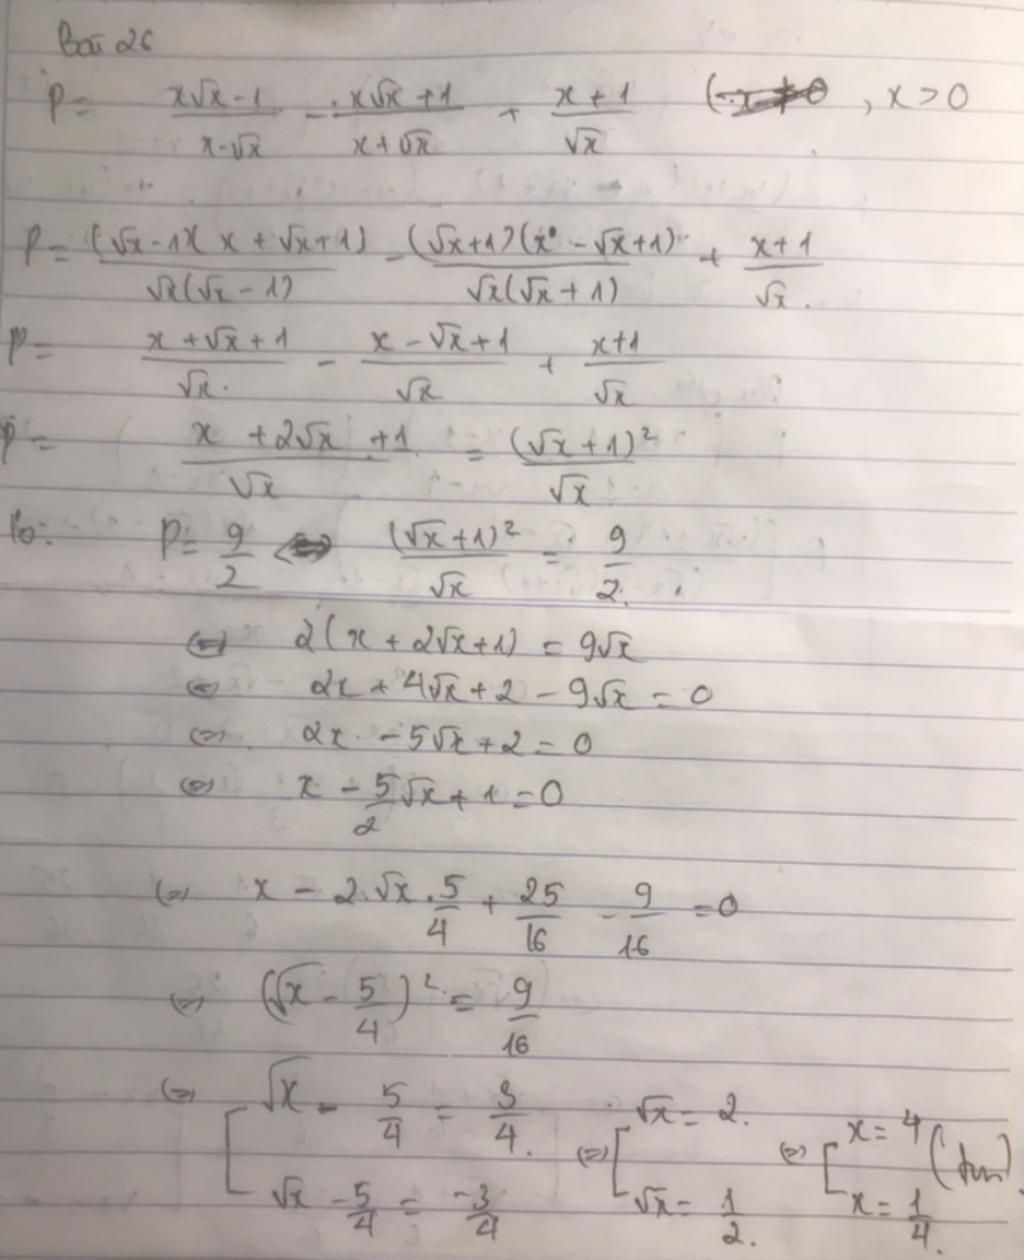 Bài 26
P = \frac{x\sqrt{x} - 1}{x - \sqrt{x}} - \frac{x\sqrt{x} + 1}{x + \sqrt{x}} + \frac{x + 1}{\sqrt{x}} ( , x > 0
P = \frac{(\sqrt{x} - 1)(x + \sqrt{x} + 1)}{\sqrt{x}(\sqrt{x} - 1)} - \frac{(\sqrt{x} + 1)(x - \sqrt{x} + 1)}{\sqrt{x}(\sqrt{x} + 1)} + \frac{x + 1}{\sqrt{x}}
P = \frac{x + \sqrt{x} + 1}{\sqrt{x}} - \frac{x - \sqrt{x} + 1}{\sqrt{x}} + \frac{x + 1}{\sqrt{x}}
P = \frac{x + 2\sqrt{x} + 1}{\sqrt{x}} = \frac{(\sqrt{x} + 1)^2}{\sqrt{x}}
P = \frac{9}{2} ⇔ \frac{(\sqrt{x} + 1)^2}{\sqrt{x}} = \frac{9}{2}
⇔ 2(x + 2\sqrt{x} + 1) = 9\sqrt{x}
⇔ 2x + 4\sqrt{x} + 2 - 9\sqrt{x} = 0
⇔ 2x - 5\sqrt{x} + 2 = 0
⇔ x - \frac{5}{2}\sqrt{x} + 1 = 0
⇔ x - 2.\sqrt{x}.\frac{5}{4} + \frac{25}{16} - \frac{9}{16} = 0
⇔ (\sqrt{x} - \frac{5}{4})^2 = \frac{9}{16}
⇔ [ \sqrt{x} - \frac{5}{4} = \frac{3}{4} ⇔ [ \sqrt{x} = 2 ⇔ [ x = 4 (tm)
\sqrt{x} - \frac{5}{4} = \frac{-3}{4} \sqrt{x} = \frac{1}{2} x = \frac{1}{4}